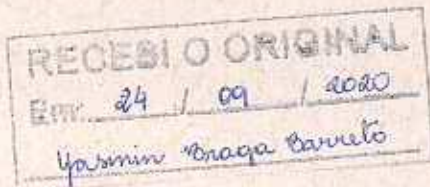 RECEBI O ORIGINAL
Em: 24 / 09 / 2020
Yasmin Braga Barreto